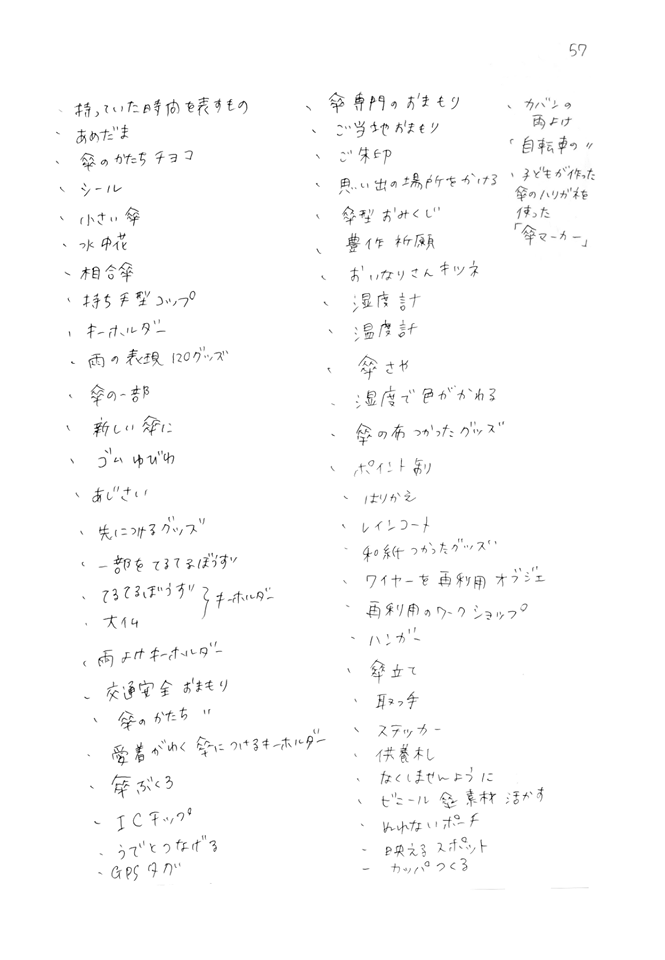 57
、持っていた時間を表すもの
、あめだま
、傘のかたちチョコ
、シール
、小さい傘
、水中花
、相合傘
、持ち手型コップ
、キーホルダー
、雨の表現120グッズ
、傘の一部
、新しい傘に
、ゴムゆびわ
、あじさい
、先につけるグッズ
、一部をてるてるぼうず
、てるてるぼうず 〉キーホルダー
、大仏
、雨よけキーホルダー
、交通安全おまもり
、傘のかたち 〃
、愛着がわく傘につけるキーホルダー
、傘ぶくろ
、ICチップ
、うでとつなげる
、GPSタグ
、傘専門のおまもり
、ご当地おまもり
、ご朱印
、思い出の場所をかける
、傘型おみくじ
、豊作祈願
、おいなりさんキツネ
、湿度計
、温度計
、傘さや
、湿度で色がかわる
、傘の布つかったグッズ
、ポイント制
、はりかえ
、レインコート
、和紙つかったグッズ
、ワイヤーを再利用オブジェ
、再利用のワークショップ
、ハンガー
、傘立て
、取っ手
、ステッカー
、供養札
、なくしませんように
、ビニール傘素材活かす
、ぬれないポーチ
、映えるスポット
、カッパつくる
、カバンの
雨よけ
「自転車の 〃
、子どもが作った
傘のハリガネを
使った
「傘マーカー」